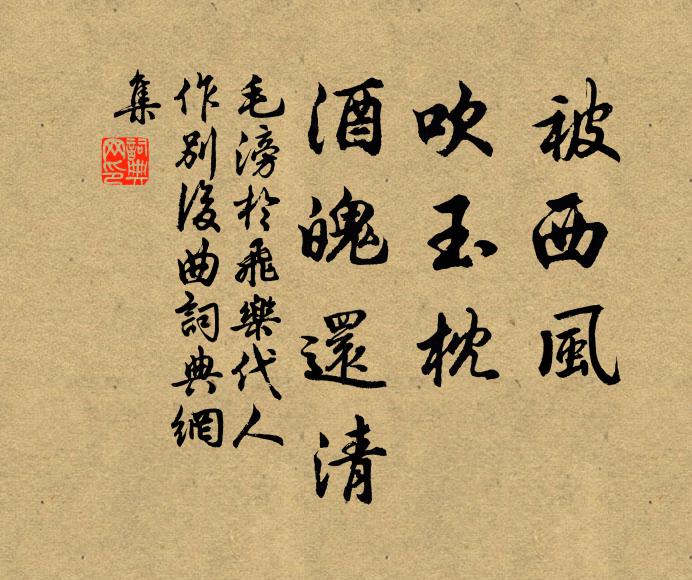 被西風
吹玉枕
酒魄還清
毛滂於飛樂代人
作別後曲詞典網
集
詞典网印